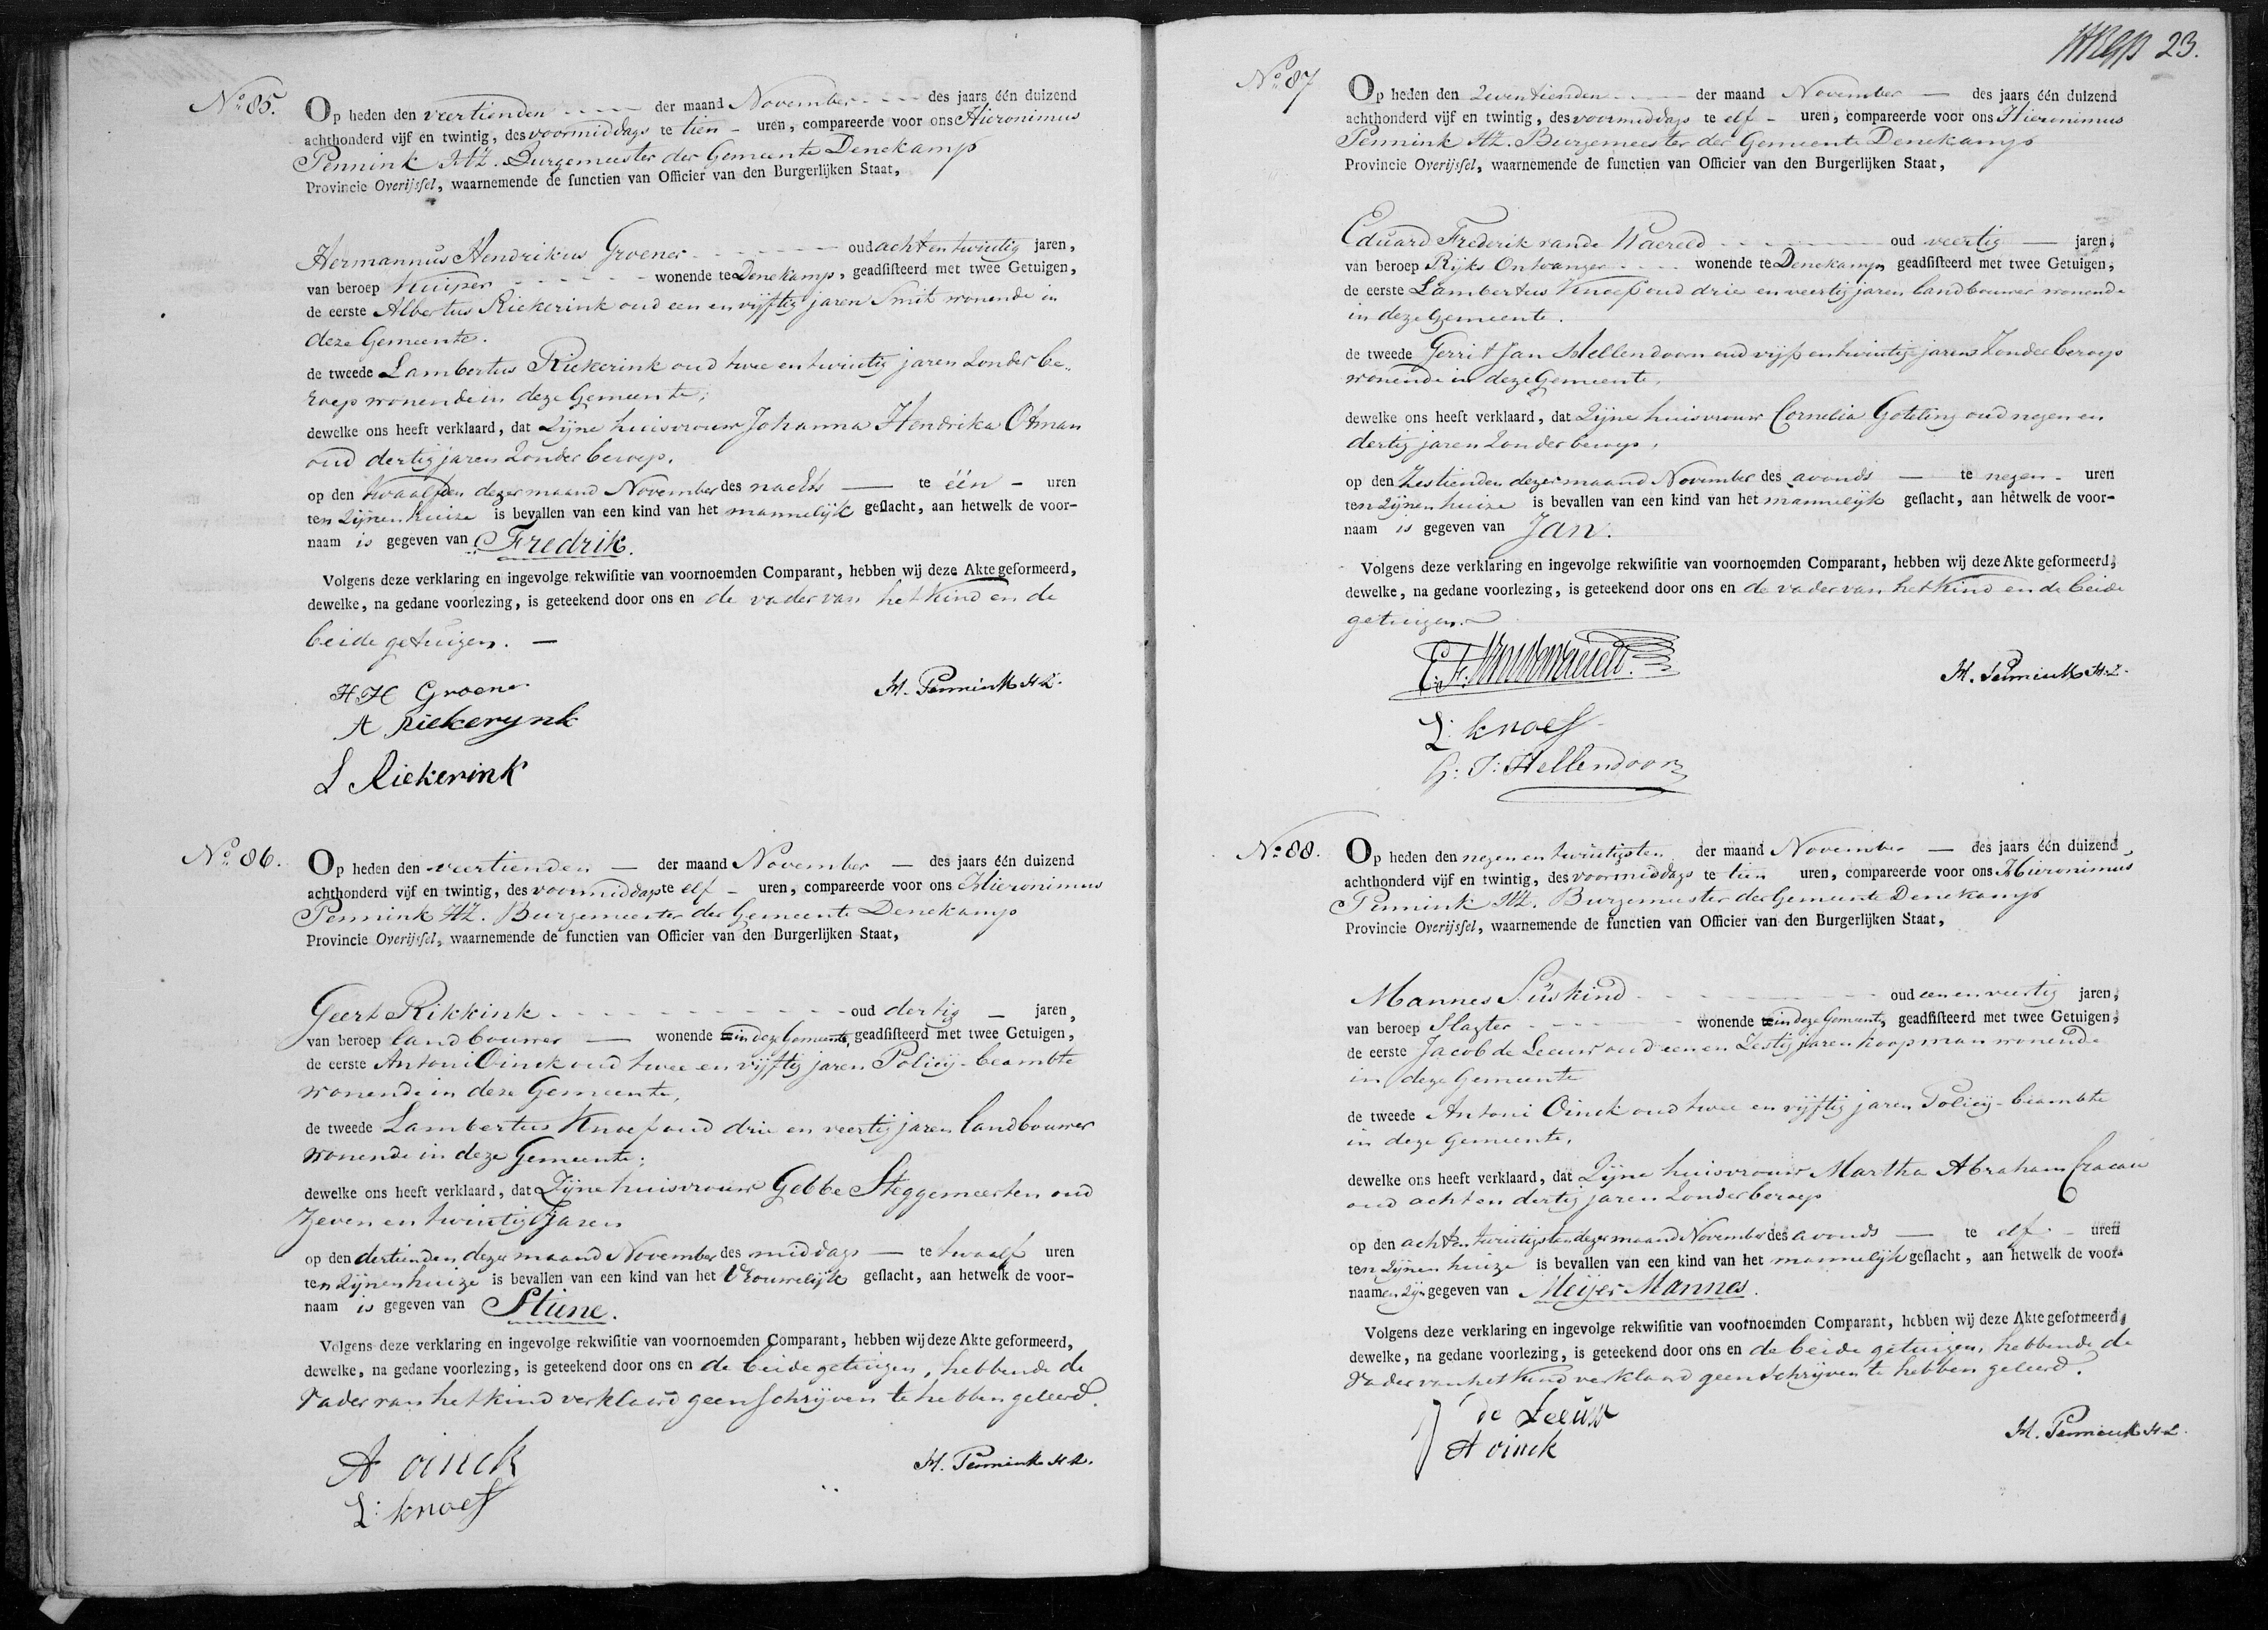 No. 85.
Op heden den veertienden der maand November des jaars één duizend
achthonderd vijf en twintig, des voormiddags te tien uren, compareerde voor ons Hieronimus
Pennink HZ. Burgemeester der Gemeente Denekamp
Provincie Overijssel, waarnemende de functien van Officier van den Burgerlijken Staat,
Hermannus Hendrikus Groener oud acht en twintig jaren,
van beroep Kuiper wonende te Denekamp, geadsisteerd met twee Getuigen,
de eerste Albertus Riekerink oud een en vijftig jaren Smit wonende in
deze Gemeente.
de tweede Lambertus Riekerink oud twee en twintig jaren zonder be-
roep wonende in deze Gemeente;
dewelke ons heeft verklaard, dat Zijne huisvrouw Johanna Hendrika Otman
oud dertig jaren zonder beroep.
op den twaalfden dezer maand November des nachts te één uren
ten zijnen huize is bevallen van een kind van het mannelijk geslacht, aan hetwelk de voor-
naam is gegeven van Fredrik.
Volgens deze verklaring en ingevolge rekwisitie van voornoemden Comparant, hebben wij deze Akte geformeerd,
dewelke, na gedane voorlezing, is geteekend door ons en de vader van het Kind en de
beide getuigen.
H. H Groener
H. Pennink HZ.
A Riekerynk
L Riekerink
No. 86.
Op heden den veertienden der maand November des jaars één duizend
achthonderd vijf en twintig, des voormiddags te elf uren, compareerde voor ons Hieronimus
Pennink HZ. Burgemeester der Gemeente Denekamp
Provincie Overijssel, waarnemende de functien van Officier van den Burgerlijken Staat,
Geert Rikkink oud dertig jaren,
van beroep landbouwer wonende in deze Gemeente, geadsisteerd met twee Getuigen,
de eerste Antoni Oinck oud twee en vijftig jaren Policij-beambte
wonende in deze Gemeente,
de tweede Lambertus Knoef oud drie en veertig jaren landbouwer
wonende in deze Gemeente;
dewelke ons heeft verklaard, dat Zijne huisvrouw Gebbe Steggemeerten oud
Zeven en twintig Jaren
op den dertienden dezer maand November des middags te twaalf uren
ten zijnen huize is bevallen van een kind van het Vrouwelijk geslacht, aan hetwelk de voor-
naam is gegeven van Stiine.
Volgens deze verklaring en ingevolge rekwisitie van voornoemden Comparant, hebben wij deze Akte geformeerd,
dewelke, na gedane voorlezing, is geteekend door ons en de beide getuigen, hebbende de
Vader van het kind verklaard geen Schrijven te hebben geleerd.
A oinck
H. Pennink HZ.
L: knoef
23.
No. 87
Op heden den Zeventienden der maand November des jaars één duizend
achthonderd vijf en twintig, des voormiddags te elf uren, compareerde voor ons Hieronimus
Pennink HZ. Burgemeester der Gemeente Denekamp
Provincie Overijssel, waarnemende de functien van Officier van den Burgerlijken Staat,
Eduard Frederik van de Waereld oud veertig jaren,
van beroep Rijks Ontvanger wonende te Denekamp, geadsisteerd met twee Getuigen,
de eerste Lambertus Knoef oud drie en veertig jaren landbouwer wonende
in deze Gemeente.
de tweede Gerrit Jan Hellendoorn oud vijf en twintig jaren Zonder beroep
wonende in deze Gemeente,
dewelke ons heeft verklaard, dat Zijne huisvrouw Cornelia Goteling oud negen en
dertig jaren Zonder beroep,
op den Zestienden dezer maand November des avonds te negen uren
ten zijnen huize is bevallen van een kind van het mannelijk geslacht, aan hetwelk de voor-
naam is gegeven van Jan.
Volgens deze verklaring en ingevolge rekwisitie van voornoemden Comparant, hebben wij deze Akte geformeerd,
dewelke, na gedane voorlezing, is geteekend door ons en de vader van het Kind en de beide
getuigen.
E. F. van de waereld.
H. Pennink HZ.
L: knoef
G: J: Hellendoorn
No. 88.
Op heden den negen en twintigsten der maand November des jaars één duizend
achthonderd vijf en twintig, des voormiddags te tien uren, compareerde voor ons Hieronimus
Pennink HZ. Burgemeester der Gemeente Denekamp
Provincie Overijssel, waarnemende de functien van Officier van den Burgerlijken Staat,
Mannes Süskind oud een en veertig jaren,
van beroep Slagter wonende in deze Gemeente, geadsisteerd met twee Getuigen,
de eerste Jacob de Leeuw oud een en Zestig jaren koopman wonende
in deze Gemeente
de tweede Antoni Oinck oud twee en vijftig jaren Policij-beambte
in deze Gemeente,
dewelke ons heeft verklaard, dat Zijne huisvrouw Martha Abraham Cracau
oud acht en dertig jaren Zonder beroep
op den acht en twintigsten dezer maand November des avonds te elf uren
ten zijnen huize is bevallen van een kind van het mannelijk geslacht, aan hetwelk de voor-
naamen zijn gegeven van Meijer Mannes.
Volgens deze verklaring en ingevolge rekwisitie van voornoemden Comparant, hebben wij deze Akte geformeerd,
dewelke, na gedane voorlezing, is geteekend door ons en de beide getuigen, hebbende de
Vader van het Kind verklaard geen Schrijven te hebben geleerd.
J de Leeuw
H. Pennink HZ.
A oinck